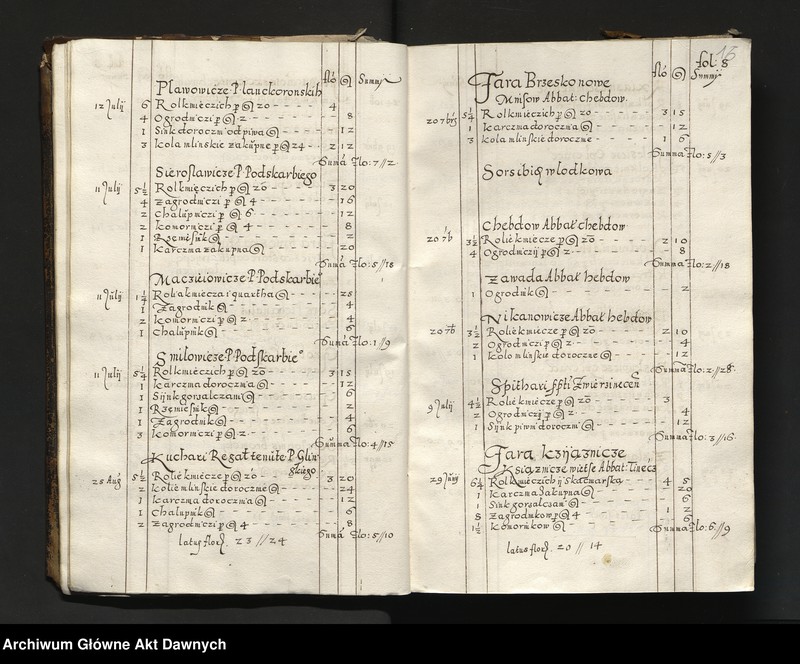 flo g Summ
Plawowicze P Lanckoronskih
12 Julij 6 Rol kmieczich p g 20 - - - - 4
4 Ogrodniczi p g 2 - - - - 8
1 Sinkdoroczni od piwa g - - - 12
3 Kola mlinskie zakupne p g 24 - - 2 12
Sumá Flo: 7 // 2
Sieroslawicze P Podskarbiego
11 Julij 5½ Rol kmięczich p g 20 - - - - 3 20
4 Zagrodniczi p g 4 - - - - 16
2 Chalupniczi p g 6 - - - - 12
2 Komorniczi p g 4 - - - - 8
1 Rzemięsnik g - - - - 2
1 Karczma zakupna g - - - - 20
Sumá Flo: 5 // 18
Macziiowicze P Podskarbieº
11 Julij Rolia kmiecza i quartha g - - - 28
1 Zagrodnik g - - - - 4
2 Komorniczi p g 2 - - - - 4
1 Chalupnik g - - - - 6
Sumá Flo: 1 // 9
Smilowicze P Podskarbieº
11 Julij Rol kmieczich p g 20 - - - - 3 15
1 Karczma doroczna g - - - - 12
1 Sijnk gorsalczani g - - - - 6
1 Rzemięsnik g - - - - 2
1 Zagrodnik g - - - - 4
3 Komorniczi p g 2 - - - - 6
Sumá Flo: 4 // 15
Kuchari Regał tenute P Glin
skiego
28 Aug 5½ Rolie kmiecze p g 20 - - - - 3 20
2 Kolie mlinskie doroczne g - - - 24
1 Karczma doroczna g - - - - 12
1 Chalupnik g - - - - 6
2 Zagrodniczi p g 4 - - - - 8
Sumá Flo: 5 // 10
latus flor. 23 // 24
16
fol: 8
flo g Summ
Fara Brzesko nowe
Mnisow Abbat: chebdow.
20 7bris Rol kmieczich p g 20 - - - - 3 15
1 Karczma doroczna g - - - - 12
3 Kola mlinskie doroczne - - - 1 6
Summa Flo: 5 // 3
Sors ibid wlodkowa
Chebdow Abbat chebdow
20 7b 3½ Rolie kmiecze p g 20 - - - - 2 10
4 Ogrodniczij p g 2 - - - - 8
Summa Flo: 2 // 18
Zawada Abbat hebdow
1 Ogrodnik g - - - - 2
Nikanowicze Abbat hebdow
20 7b 3½ Rolie kmiecze p g 20 - - - - 2 10
2 Ogrodniczi p g 2 - - - - 4
1 Kolo mlinskie doroczne g - - - - 12
Summa Flo: 2 // 28
Spithari ssti Zwiersinecen
9 Julij 4½ Rolie kmiecze p g 20 - - - - 3
2 Ogrodniczij p g 2 - - - - 4
1 Sijnk piwni doroczni g - - - - 12
Summa Flo: 3 // 16
Fara Kzijąznicze
Ksiąznicze wietse Abbat: Tinecz
29 Junij Rol kmieczich ij Skaczmarska - - 4 5
1 Karczma Zakupna g - - - - 20
1 Sink gorsalcsani g - - - - 6
8 Zagrodnikow p g 4 - - - - 1 2
Komornikow g - - - - 6
Summa Flo: 6 // 9
latus flor. 20 // 14
Archiwum Główne Akt Dawnych